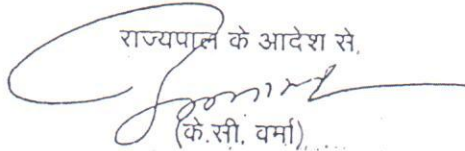 राज्यपाल के आदेश से,
(के.सी. वर्मा)